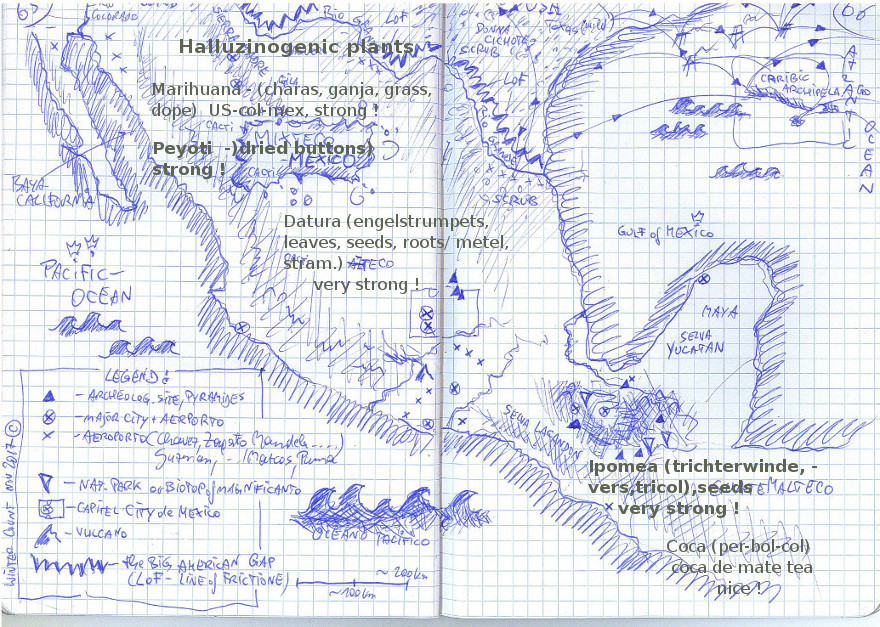 COLORADO
RIO GRA
LOF
DONNA
CICHOTE
SCRUB
TEXAS
Halluzinogenic plants
Marihuana - (charas, ganja, grass,
dope) US-col-mex, strong !
GILA
CACTI
MIXTECO
MEXICO
Peyoti -)dried buttons)
strong !
CACTI
LOF
SCRUB
CARIBIC
ARCHIPELAGO
ATLANTIC
OCEAN
BAYA-
CALIFORNIA
Datura (engelstrumpets,
leaves, seeds, roots/ metel,
stram.)
AZTECO
very strong !
GULF of MEXICO
PACIFIC-
OCEAN
MAYA
SELVA
YUCATAN
LEGEND:
- ARCHEOLOG. SITE, PYRAMIDES
- MAJOR CITY + AERPORTO
- AEROPORTO (Chavez, Zapato Mandela ....)
NAT. PARK or BIOTOP of MAGNIFICANTO
- CAPITEL CITY de MEXICO
- VULCANO
the BIG AMERICAN GAP
(LOF - LINE of FRICTIONE)
WINTER COUNT NOV 2017 ©
OCEANO PACIFICO
~ 200 km
~100km
SELVA LACANDON
Ipomea (trichterwinde, -
vers,tricol),seeds
very strong !
Coca (per-bol-col)
coca de mate tea
nice !